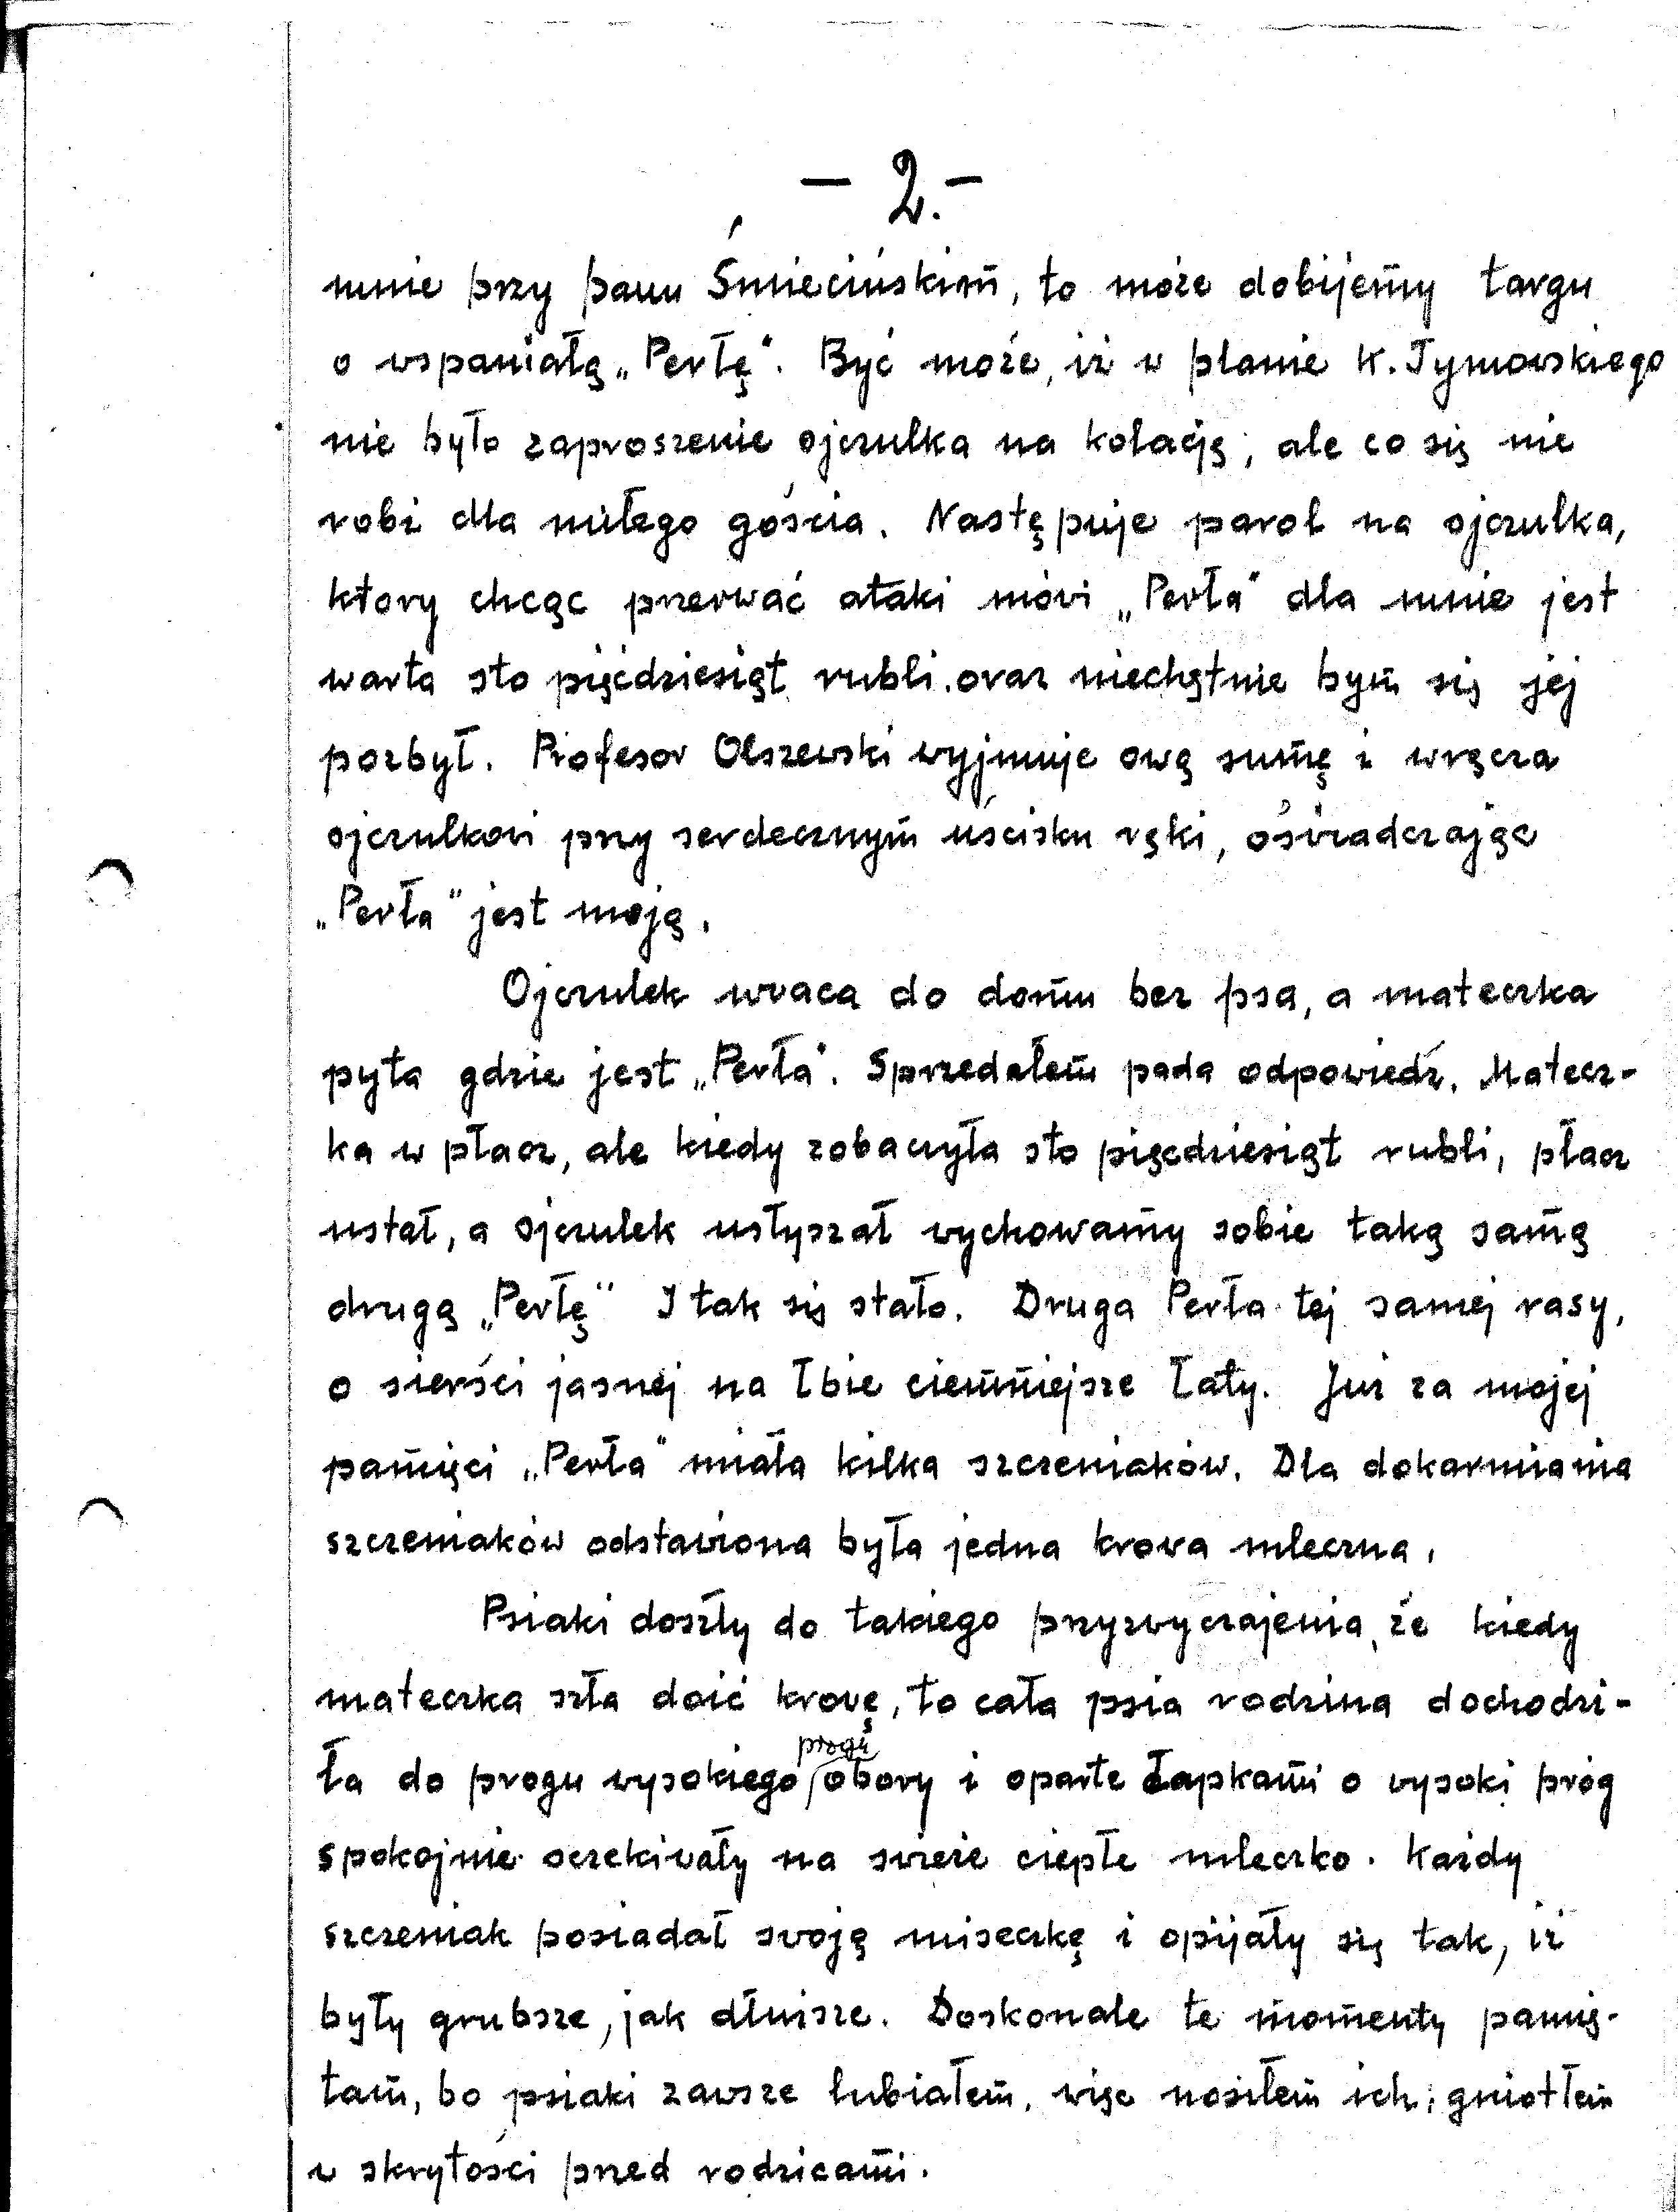 – 2. –
mnie przy panu Śmiecińskim, to może dobijemy targu
o wspaniałą „Perłę". Być może, iż w planie K. Tymowskiego
nie było zaproszenie ojczulka na kolację, ale co się nie
robi dla miłego gościa. Następuje parol na ojczulka,
ktory chcąc przerwać ataki mówi „Perła" dla mnie jest
warta sto pięćdziesiąt rubli. oraz niechętnie bym się jej
pozbył. Profesor Olszewski wyjmuje ową sumę i wręcza
ojczulkowi przy serdecznym uścisku ręki, oświadczając
„Perła" jest moją.
Ojczulek wraca do domu bez psa, a mateczka
pyta gdzie jest „Perła". Sprzedałem pada odpowiedź. Matecz-
ka w płacz, ale kiedy zobaczyła sto pięcdziesiąt rubli, płacz
ustał, a ojczulek usłyszał wychowamy sobie taką samą
drugą „Perłę" I tak się stało. Druga Perła tej samej rasy,
o sierści jasnej na łbie ciemniejsze łaty. Już za mojej
pamięci „Perła" miała kilka szczeniaków. Dla dokarmiania
szczeniaków odstawiona była jedna krowa mleczna.
Psiaki doszły do takiego przyzwyczajenia, że kiedy
mateczka szła doić krowę, to cała psia rodzina dochodzi-
ła do progu wysokiego progu obory i oparte łapkami o wysoki próg
spokojnie oczekiwały na swieże ciepłe mleczko. Każdy
szczeniak posiadał swoją miseczkę i opijały się tak, iż
były grubsze, jak dłuższe. Doskonale te momenty pamię-
tam, bo psiaki zawsze lubiałem, więc nosiłem ich i gniotłem
w skrytości przed rodzicami.